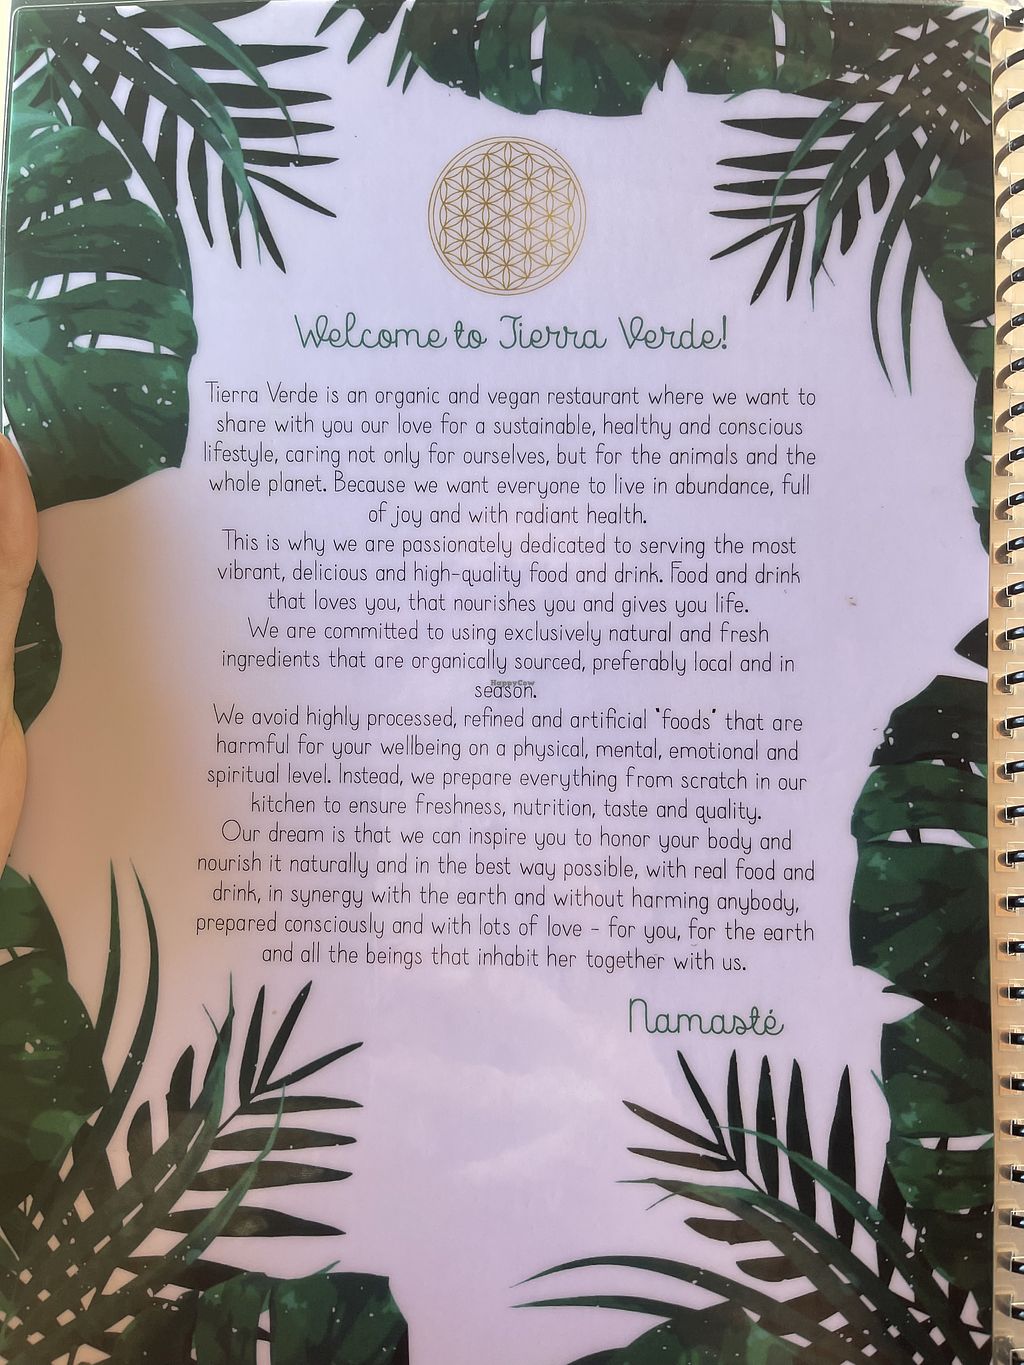 Welcome to Tierra Verde!
Tierra Verde is an organic and vegan restaurant where we want to
share with you our love for a sustainable, healthy and conscious
lifestyle, caring not only for ourselves, but for the animals and the
whole planet. Because we want everyone to live in abundance, full
of joy and with radiant health.
This is why we are passionately dedicated to serving the most
vibrant, delicious and high-quality food and drink. Food and drink
that loves you, that nourishes you and gives you life.
We are committed to using exclusively natural and fresh
ingredients that are organically sourced, preferably local and in
season.
HappyCow
We avoid highly processed, refined and artificial "foods" that are
harmful for your wellbeing on a physical, mental, emotional and
spiritual level. Instead, we prepare everything from scratch in our
kitchen to ensure freshness, nutrition, taste and quality.
Our dream is that we can inspire you to honor your body and
nourish it naturally and in the best way possible, with real food and
drink, in synergy with the earth and without harming anybody,
prepared consciously and with lots of love - for you, for the earth
and all the beings that inhabit her together with us.
Namasté